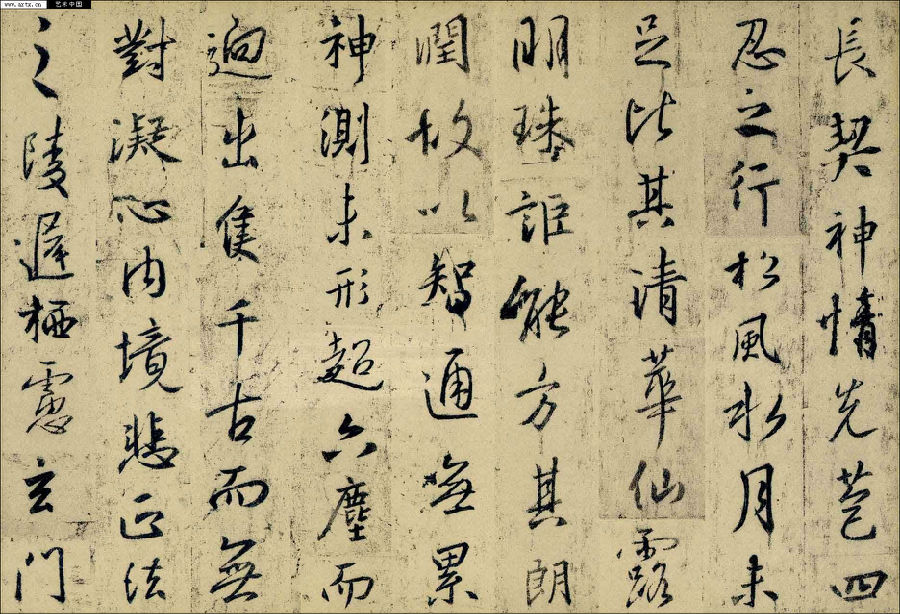 長契神情先苞四
忍之行松風水月未
足比其清華仙露
明珠詎能方其朗
潤故以智通無累
神測未形超六塵而
迥出隻千古而無
對凝心內境悲正法
之陵遲栖慮玄門
www.artx.cn 艺术中国